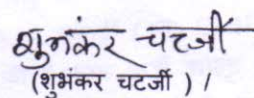 शुभंकर चटर्जी
(शुभंकर चटर्जी ) /